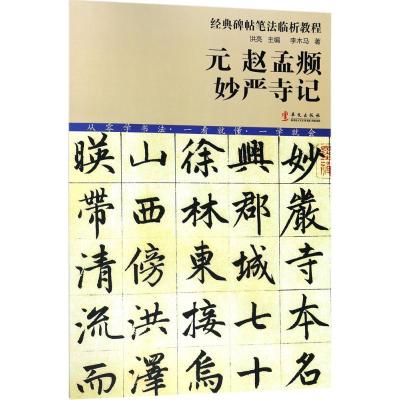 经典碑帖笔法临析教程
洪亮 主编 李木马 著
元 赵孟頫
妙严寺记
华文出版社
从零学书法·一看就懂·一学就会
妙嚴寺本名
興郡城七十
徐林東接烏
山西傍洪澤
暎帶清流而